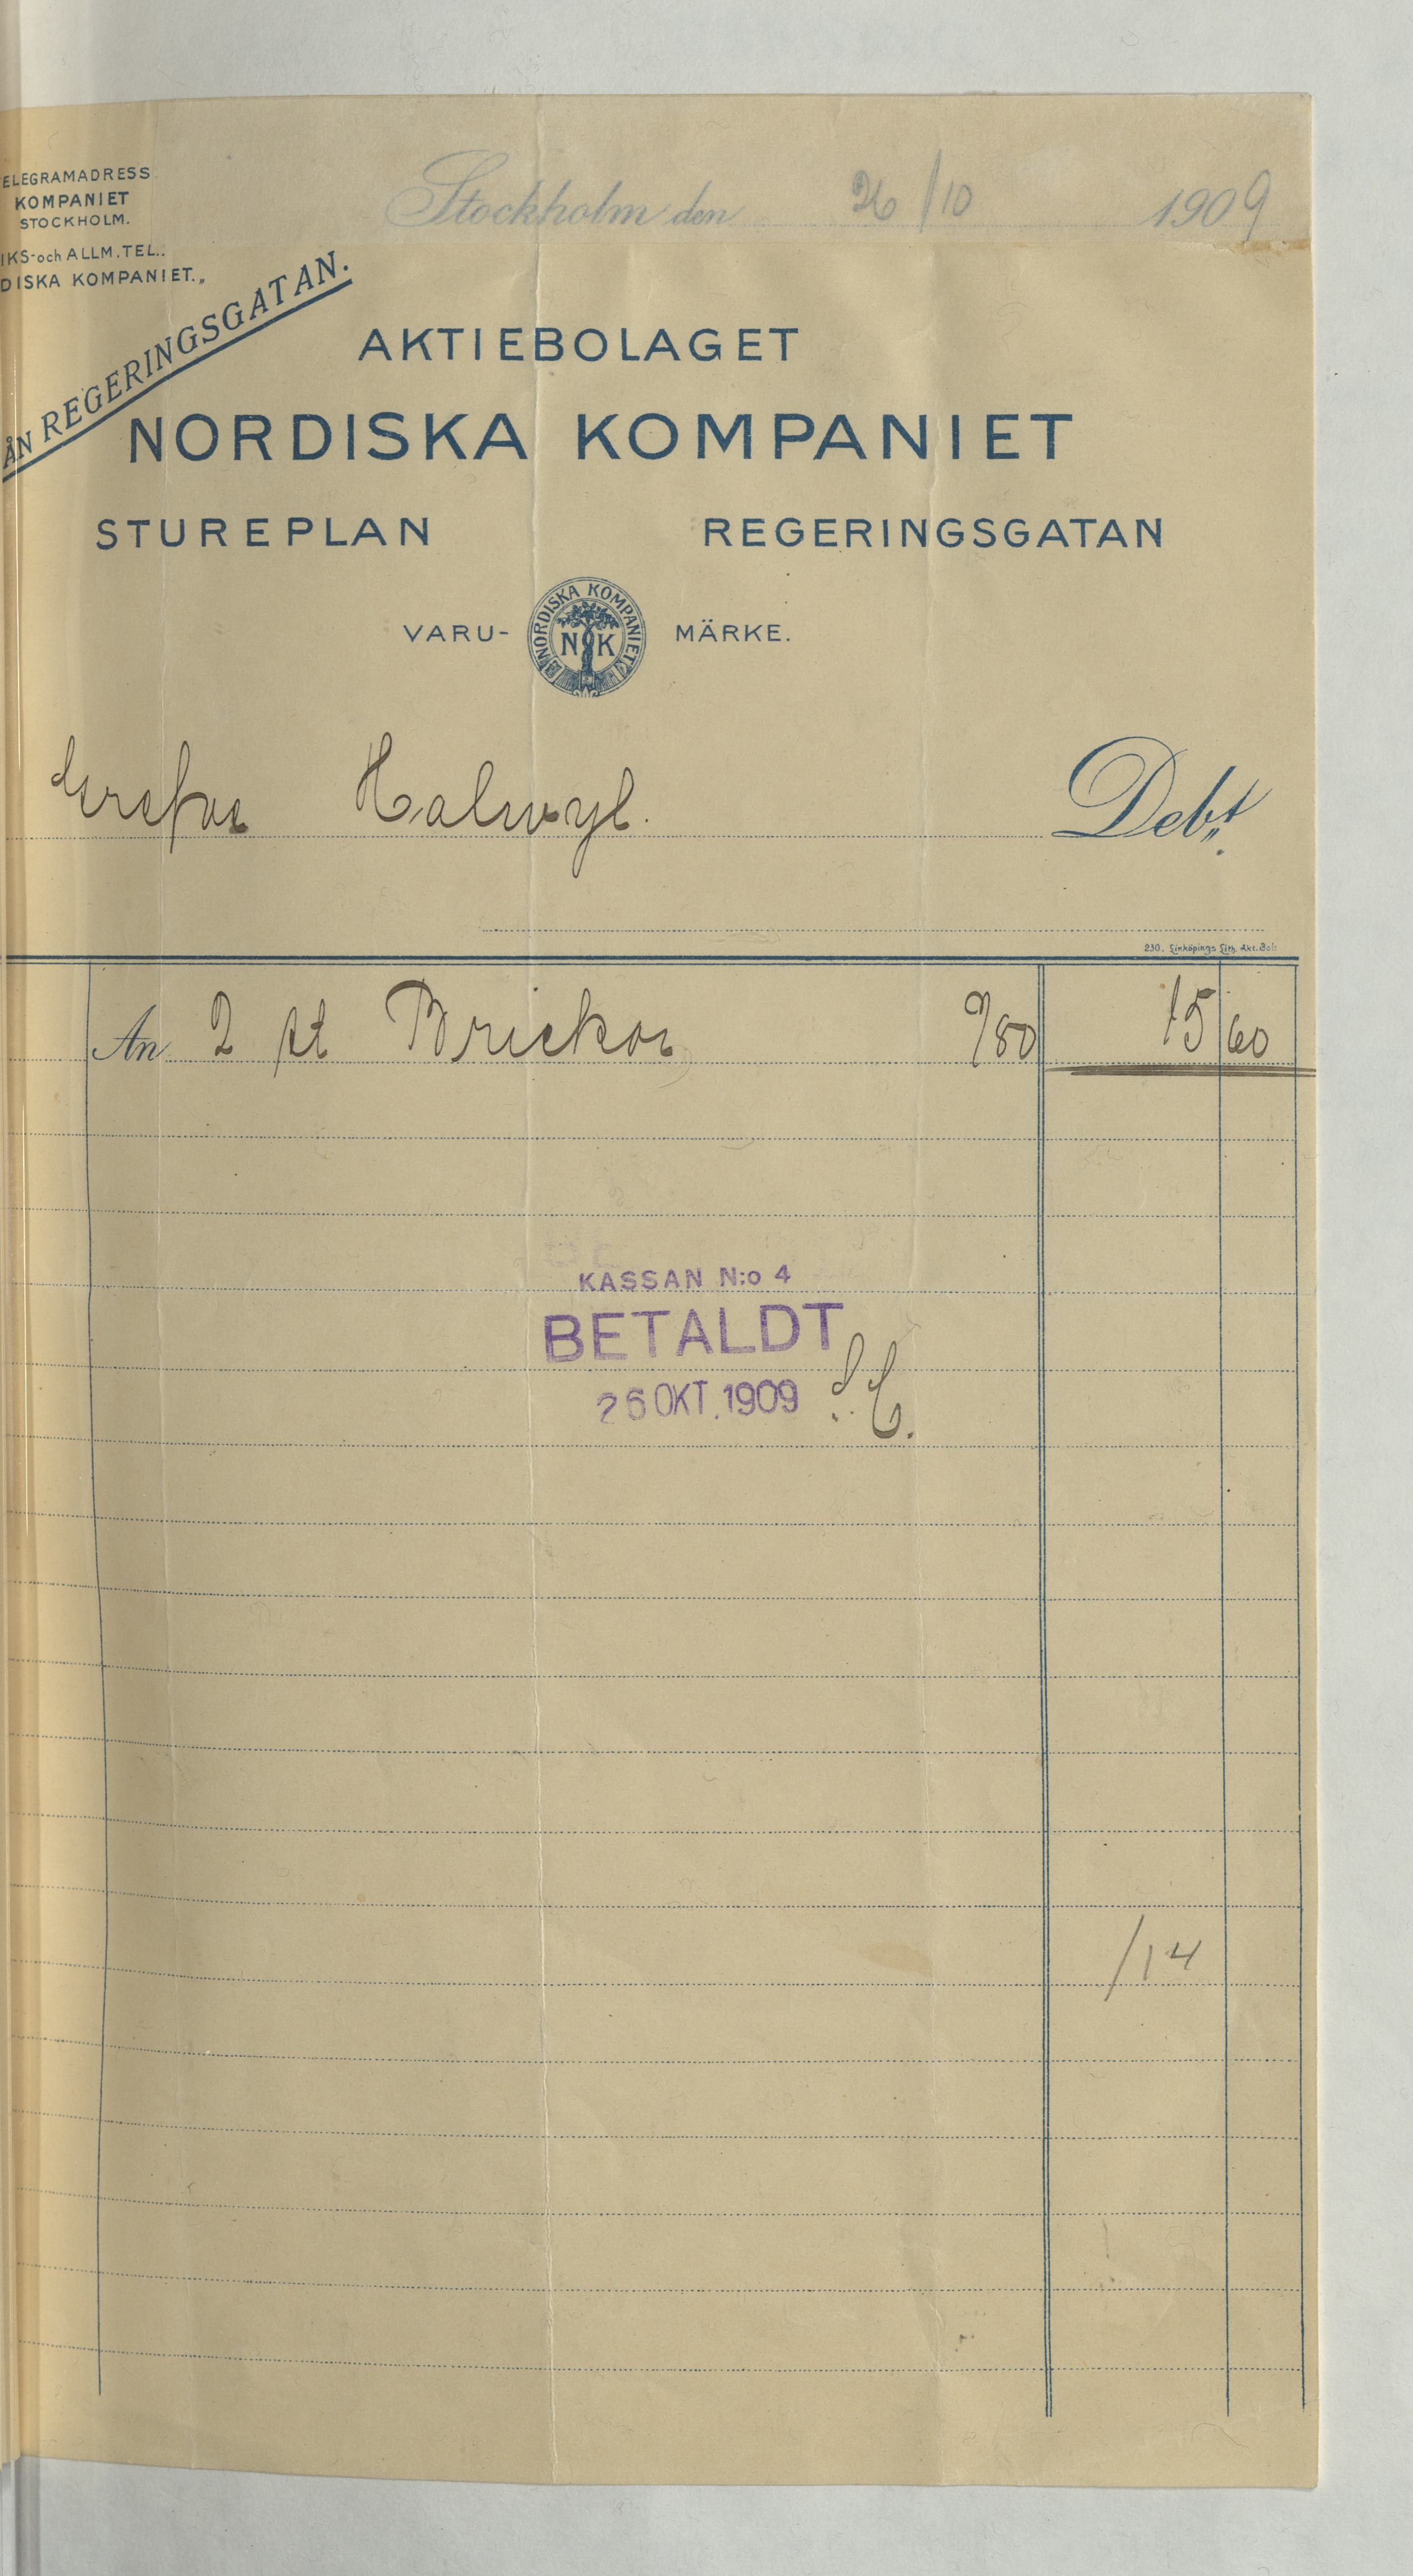 ELEGRAMADRESS
KOMPANIET
STOCKHOLM.
IKS- och ALLM. TEL..
DISKA KOMPANIET.„
ÅN REGERINGSGATAN.
Stockholm den 26/10 1909
AKTIEBOLAGET
NORDISKA KOMPANIET
STUREPLAN REGERINGSGATAN
VARU- MÄRKE.
NORDISKA KOMPANIET
N K
Halwyl. Debt
230. Linköpings Lith. Akt. Bol:
An 2 st Brickor 7/80 15 60
KASSAN N:o 4
BETALDT
26 OKT. 1909
/14